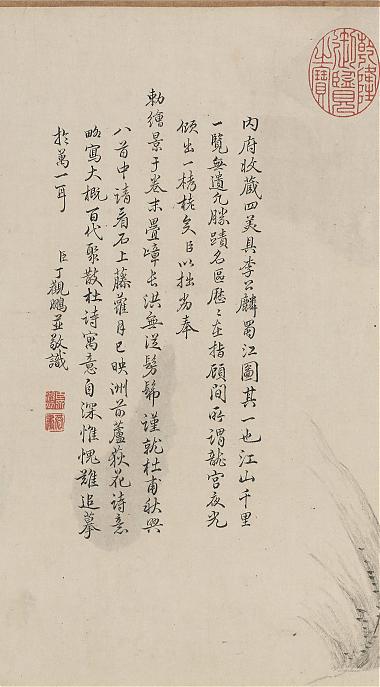 乾隆御覽之寶
內府收藏四美具李公麟蜀江圖其一也江山千里
一覽無遺凡勝蹟名區歷〻在指顧間所謂龍宮夜光
傾出一栲栳矣臣以拙劣奉
勅繪景于卷末疊嶂長洪無從髣髴謹就杜甫秋興
八首中請看石上藤蘿月已映洲前蘆荻花詩意
略寫大概百代聚散杜詩寓意自深惟愧難追摹
於萬一耳　臣丁觀鵬並敬識